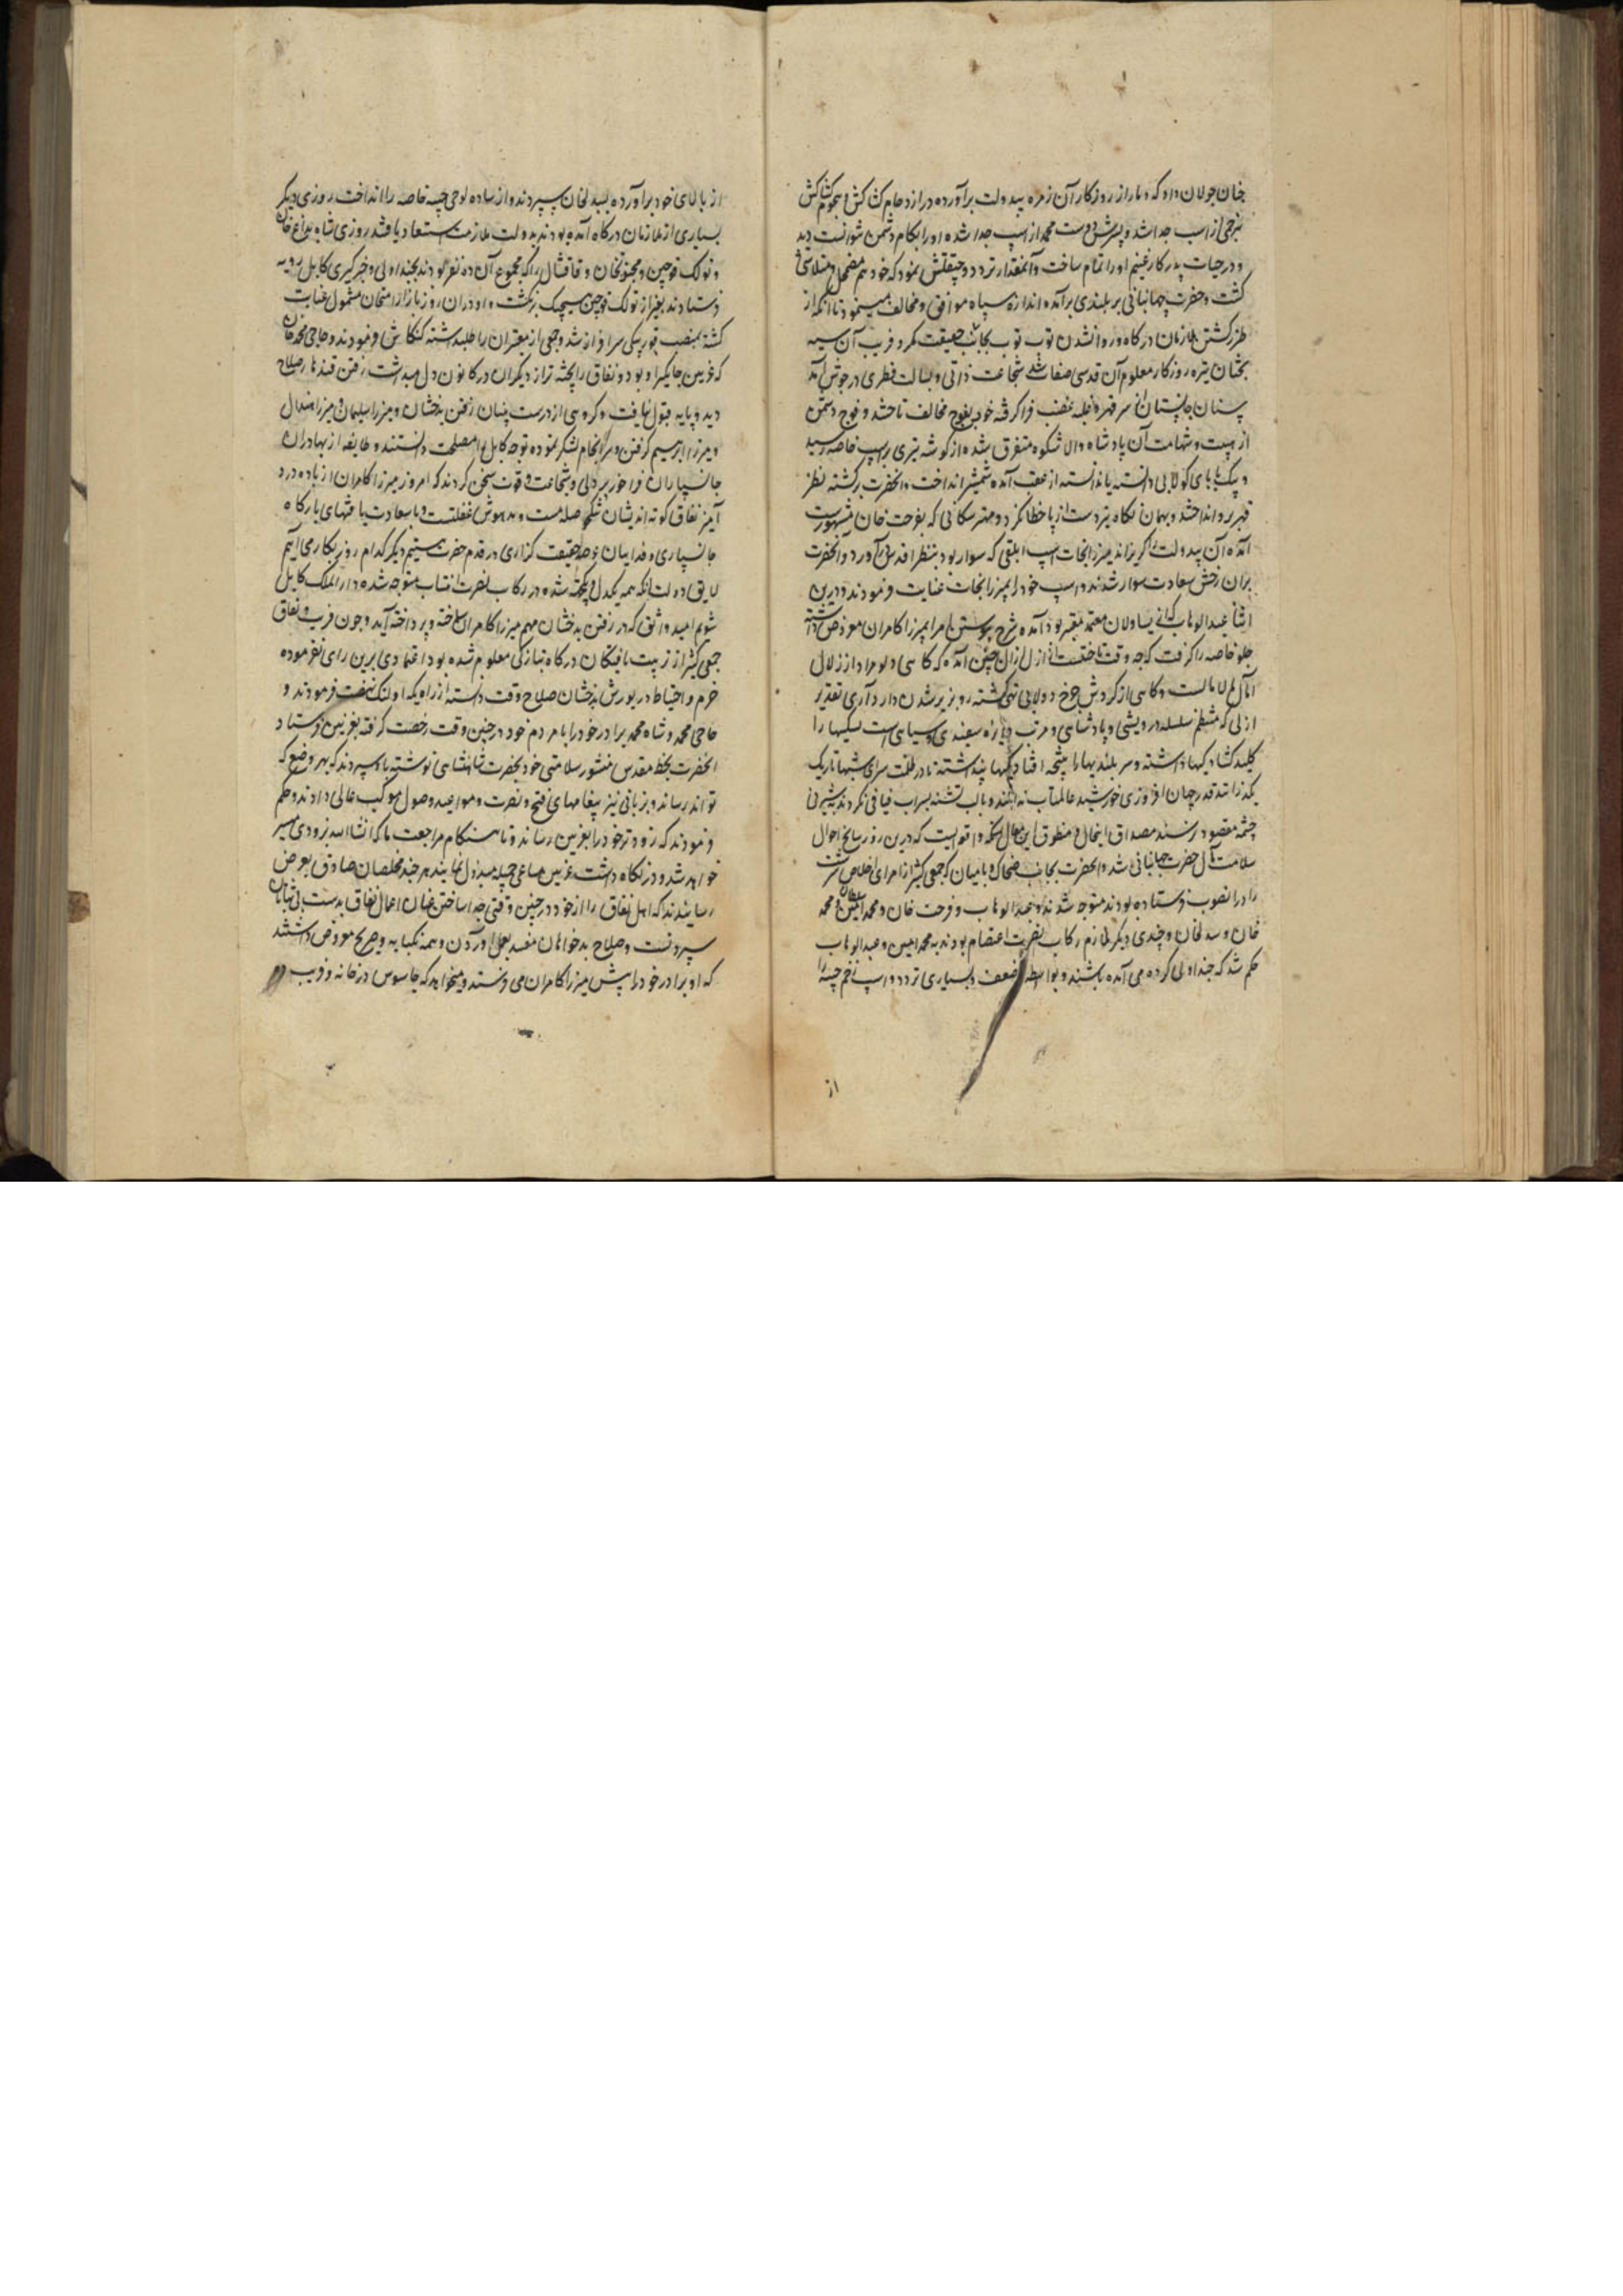 خان جولان داد که دمار از روزگار آن زمره بیدولت برآورده در ازدحام کشاکش و هجوم کشاکش
زخمی از اسب جدا شد و پسرش دوست محمد از اسپ جدا شده او را بکام دشمن نتوانست دید
و در حیات پدر کار غنیم او را تمام ساخت و آنمقدار تردد و چپقلش نمود که خود هم مضمحل و متلاشی
گشت و حضرت جهانبانی بر بلندی برآمده اندازه سپاه موافق و مخالف میسنمود تا آنکه از
طرز گشتن ملازمان درگاه و روانشدن توپ توپ بجانب حقیقت مکر و فریب آن سیه
بختان تیره روزگار معلوم آن قدسی صفات شد شجاعت ذاتی و بسالت فطری در جوش آمد
سنان جانستان از سر قهر و غلبه غضب فرا گرفته خود بفوج مخالف تاختند و فوج دشمن
از هیبت و شهامت آن پادشاه والا شکوه متفرق شده از گوشه تیری بر اسپ خاصه رسید
و بیک بابای کولابی دانسته یا ندانسته از عقب آمده شمشیر انداخت و آنحضرت برگشته نظر
قهر برو انداختند و بهمان نگاه تیز دست از پا خطا کرد و مهتر سکائی که بفرحت خان مشهورست
آمده آن بیدولت را گریزانید میرزا نجات اسپ ابلقی که سوار بود بنظر اقدس آورد و آنحضرت
بران رخش سعادت سوار شدند و اسپ خود را بمیرزا نجات عنایت فرمودند و درین
اثنا عبدالوهاب که از یساولان معتمد مقرر بود آمده شرح پیوستن امرا بمیرزا کامران معروض داشته
جلو خاصه را گرفت که چه وقت تاختنست از ازل ازان چنین آمده که گاهی دلو مراد از زلال
آمال لمالامالست و گاهی از گردش چرخ دولابی تهی گشته رو بزیر شدن دارد آری تقدیر
ازلی که منتظم سلسله درویشی و پادشاهی و مرتب دایره سفیدی و سیاهی است بستگیها را
کلید گشادگیها داشته و سربلندیها را نتیجه افتادگیها پنداشته تا در ظلمت سرای شبها تاریک
نگذرانند قدر جهان افروزی خورشید عالمتاب ندانند و تا لب تشنه بسراب فیافی نگردند بشیرینی
چشمه مقصود نرسند مصداق اینحال و منطوق این مقال آنکه واقعه ایست که درین روز سانح احوال
سلامت مآل حضرت جهانبانی شد و آنحضرت بجانب ضحاک و بامیان که جمعی کثیر از امرای اخلاص سرشت
را درانصوب فرستاده بودند متوجه شدند و عبدالوهاب و فرحت خان و محمد امین و محمد
خان و سبدلخان و چندی دیگر ملازم رکاب نصرت اعتصام بودند به محمد امین و عبدالوهاب
حکم شد که چنداولی کرده می آمده باشند و بواسطه ضعف و بسیاری تردد و اسپ زخم جیبه را
از
از بالای خود برآورده بسبدلخان سپردند و از ساده لوحی جیبه خاصه را انداخت روزی دیگر
بسیاری از ملازمان درگاه آمده بودند بدولت ملازمت استسعاد یافتند روزی شاه بداغ خان
و تولک قوچین و مجنونخان و قاقشال را که مجموع آن ده نفر بودند بچنداولی و خبرگیری کابل رویه
فرستادند بغیر از تولک قوچین هیچیک برنگشت و او دران روز بازار امتحان مشمول عنایت
گشته بمنصب قوربیگی سرافراز شد و جمعی از معتبران را طلبداشته کنکاش فرمودند و حاجی محمد خان
که غزنین جایگیر او بود و نفاق را پخته تر از دیگران در کانون دل میداشت رفتن قندهار صلاح
دید و پایه قبول نیافت و گروهی از درست بینان رفتن بدخشان و میرزا سلیمان و میرزا هندال
و میرزا ابراهیم گرفتن و سرانجام لشکر نموده توجه کابل را مصلحت دانستند و طایفه از بهادران
جانسپاران فراخور پر دلی و شجاعت و قوت سخن کردند که امروز میرزا کامران از باده درد
آمیز نفاق کوته اندیشان تنگ حوصله مست و مدهوش غفلتست و ما سعادت یافتهای بارگاه
جانسپاری و فداییان عرصه حقیقت گزاری در قدم حضرت هستیم دیگر کدام روز بکار می آییم
لایق دولت آنکه همه یکدل و یکجهت شده در رکاب نصرت انتساب متوجه شده دارالملک کابل
شویم امید واثق که در رفتن بدخشان مهم میرزا کامران ساخته و پرداخته آید و چون فریب و نفاق
جمعی کثیر از تربیت یافتگان درگاه بتازگی معلوم شده بود اعتمادی برین رای نفرموده
حزم و احتیاط در یورش بدخشان صلاح وقت دانسته از راه یکه اولنگ نهضت فرمودند و
حاجی محمد و شاه محمد برادر خود را با مردم خود در چنین وقت رخصت گرفته بغزنین فرستاد
آنحضرت بخط مقدس منشور سلامتی خود بحضرت شاهنشاهی نوشته باو سپردند که بهر وضع که
تواند رساند و بزبانی نیز پیغامهای فتح و نصرت و مواعید وصول موکب عالی دادند و حکم
فرمودند که زودتر خود را بغزنین رساند و تا هنگام مراجعت ما که انشا الله بزودی میسر
خواهد شد ودر نگاه داشت غزنین مساعی جمیله مبذول نمایند هر چند مخلصان صادق بعرض
رسانیدند که اهل نفاق را از خود در چنین وقتی جدا ساختن عنان اعمال نفاق بدست بی تهاشان
سپردنست و صلاح بدخواهان مفسد بعمل آوردن و همه بکنایه و صریح معروض داشتند
که او برادر خود را پیش میرزا کامران می فرستد و میخواهد که جاسوس در خانه و فریب